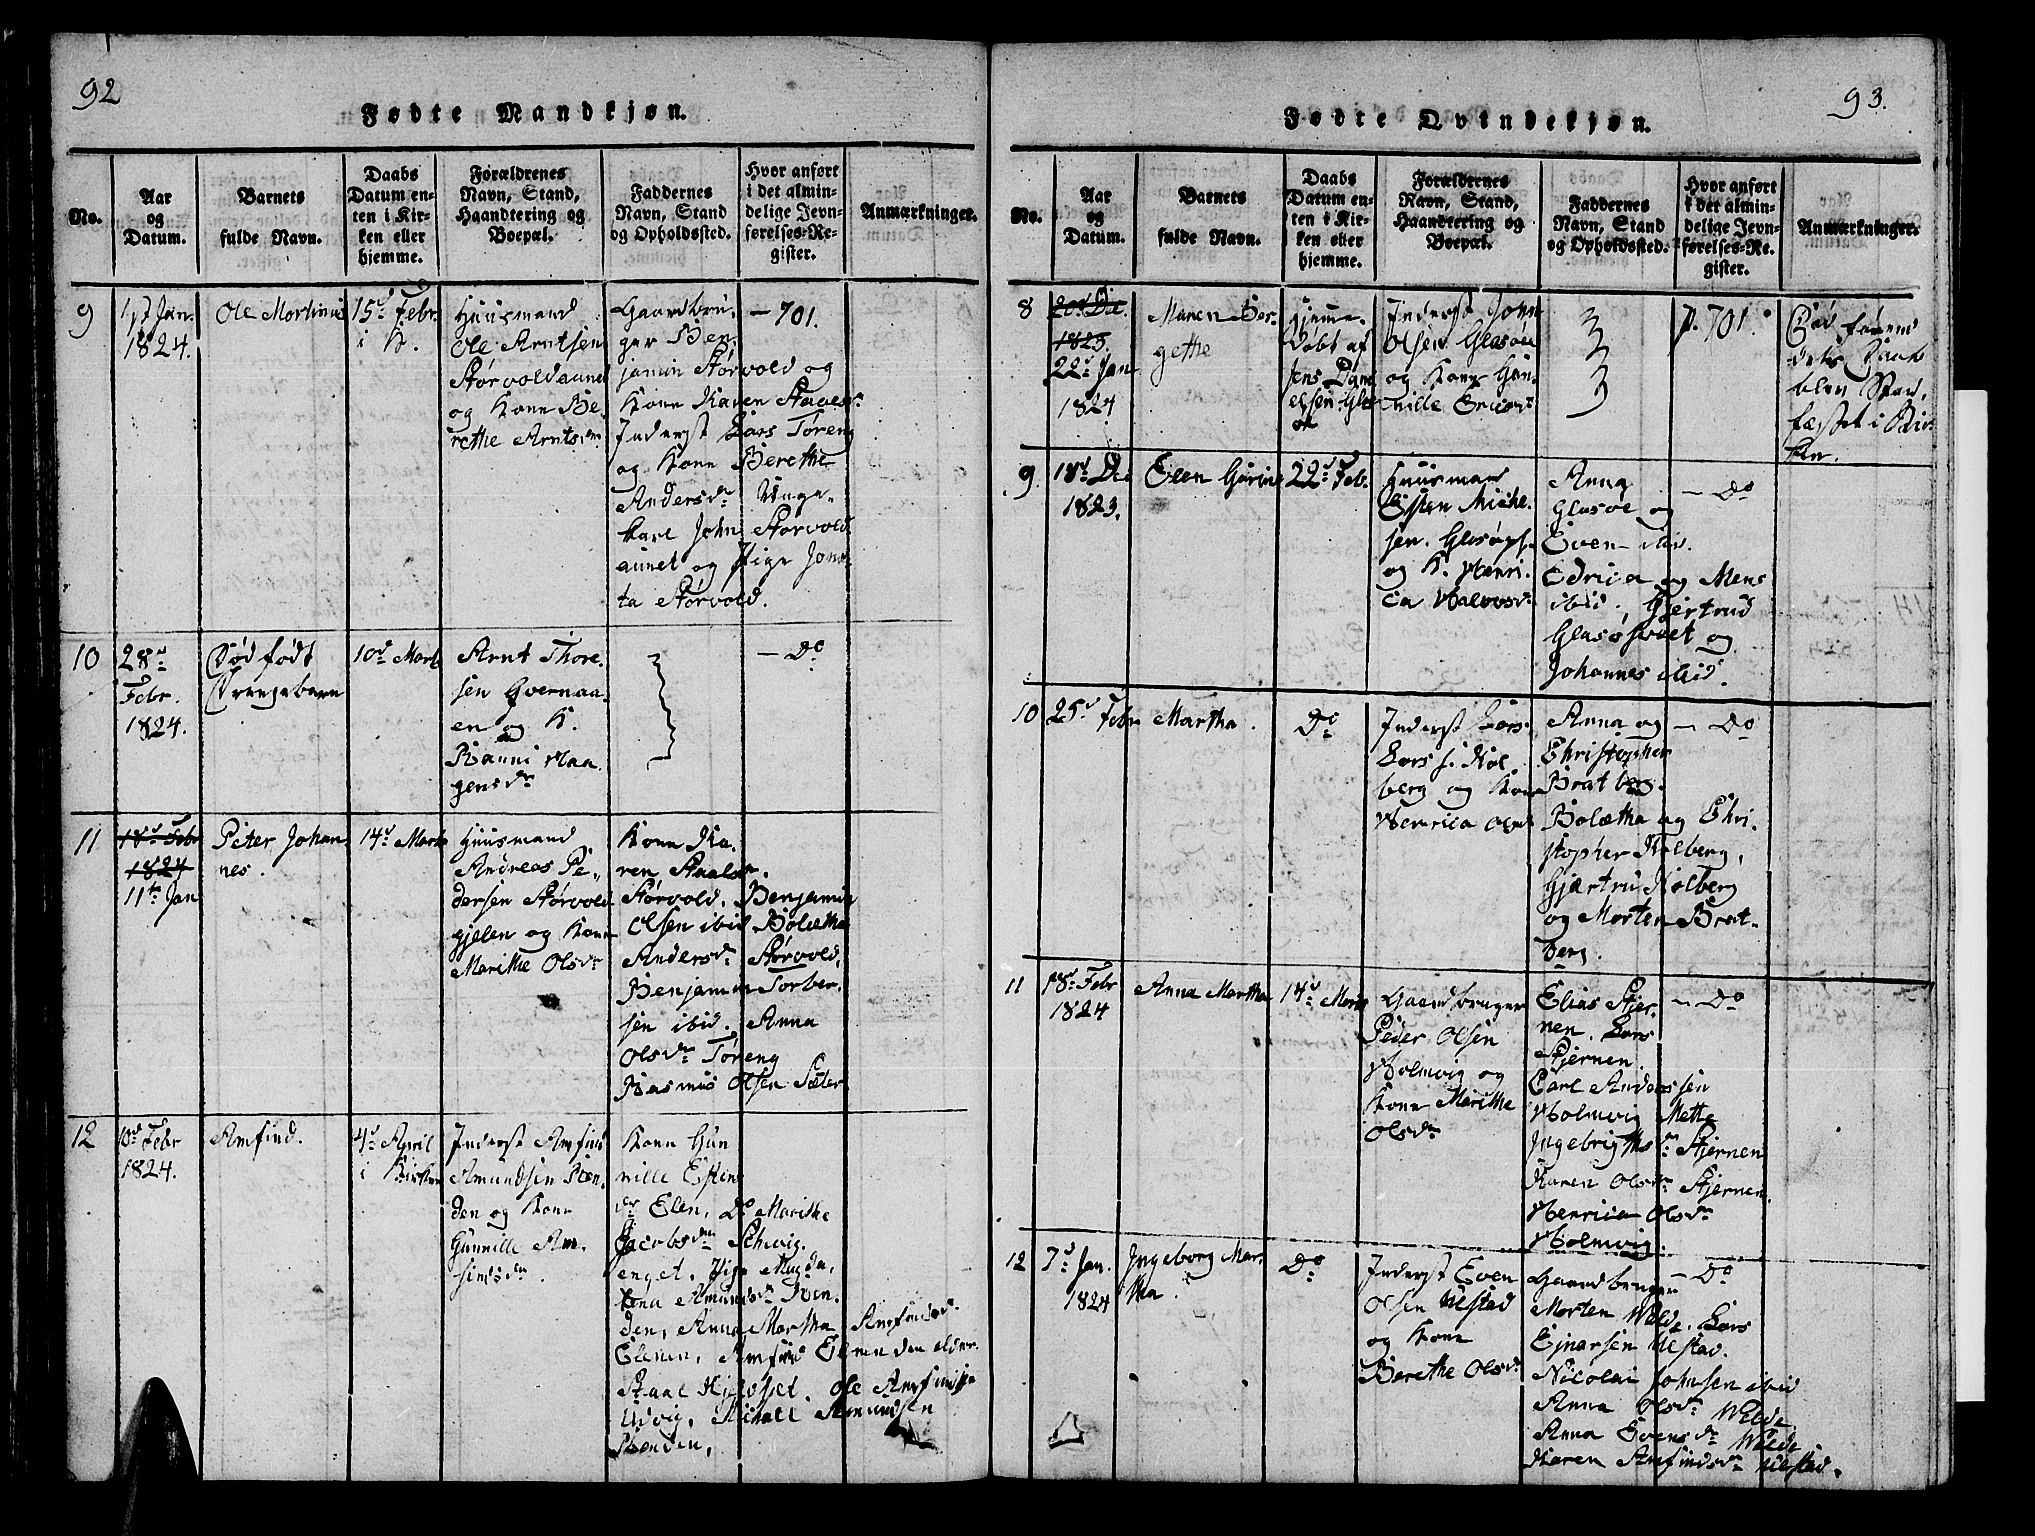 92
Fødte Mandkjøn.
No.
Aar
og
Datum.
Barnets
fulde Navn.
Daabs
Datum en-
ten i Kir-
ken eller
hjemme.
Forældrenes
Navn, Stand,
Haandtering og
Boepæl.
Faddernes
Navn, Stand
og Opholdssted.
Hvor anført
i det almin-
delige Jevn-
førelses-Re-
gister.
Anmærkninger.
9
Jan.
1824.
Ole Mortinus
15d Febr.
i K.
Huusmand
Ole Arntsen
Størvoldaunet
og Kone Be-
rethe Arntsdr
Gaardbru-
ger Ben-
jamin Størvold og
Kone Karen
Inderst Lars Toreng
og Kone Berethe
Andersdr Unge-
karl John Størvold
aunet og Pige
ta Størvold.
— 701.
10
28d
Febr.
1824.
Dødfødt
Drengebarn
10d Marts
Arnt Thore-
sen Qvernaa-
en og K.
Ranni Haa-
gensdr
— Do
11
18d Febr
1824
11te Jan
Peter Johan-
nes.
14d Marts
Huusmand
Andreas Pe-
dersen Størvold
gjelen og Kone
Marithe Olsdr
Kone Ka-
ren
Størvold. Benjamin
Olsen ibid Bolætha
Andersdr Størvold,
Benjamin Torber-
sen ibid. Anna
Olsdr Toreng
Rasmus Olsen Sæter
12
Febr
1824.
Amfind.
4d April
i Kirken
Inderst Amfind
Amundsen
den og Kone
Gunnille Am-
findsdr
Kone Gun-
nille Esten
dr Elen, Do Marithe
Jacobsdr
enget, Pige Magda-
lena Amundsdr
den, Anna Martha Amfindsdr.
Elenen, Amfind Elenen den eldre.
Ole Amfindsen
Amundsen
93.
Fødte Qvindekjøn.
No.
Aar
og
Datum.
Barnets
fulde Navn.
Daabs
Datum en-
ten i Kir-
ken eller
hjemme.
Forældrenes
Navn, Stand,
Haandtering og
Boepæl.
Faddernes
Navn, Stand
og Opholdssted.
Hvor anført
i det almin-
delige Jevn-
førelses-Re-
gister.
Anmærkninger.
8
20d De.
1823.
22d Jan
1824
Maren Ber-
gethe
Hjemme-
Døbt af
Jens Dani
elsen Glas
øe
Inderst John
Olsen Glasøen
og Kone Gun-
nille Ericsdr
p. 701.
Død førend
dets Daab
blev Stad-
fæstet i Kir-
ken.
9
18d De
1823.
Elen Gurine
22d Feb.
Huusmand
Esten Michel-
sen. Glasøe
og K. Henri-
ca
Anna
Glasøe og
Even ibid.
Edrica og Mens
ibid., Gjertrud
og
Johannes ibid.
— Do
10
25d Febr
Martha.
Do
Inderst Lars
Lars s. Kol
berg og Kone
Henrica Olsdr
Anna og
Christopher
Bratberg.
Bolætha og Chri-
stopher Kolberg,
Gjærtru Kolberg
og Morten Brat-
berg.
— Do
11
18d Febr
1824
Anna Martha
14d Marts
Gaardbruger
Peder Olsen
Holmvig og
Kone Marithe
Olsdr
Elias Stjer-
nen. Lars
Stjernen.
Carl Anderssen
Holmvig Mette
Ingebrigtsdr Stjernen
Karen Olsdr Stjernen.
Henrica Olsdr
Holmvig.
— Do
12
7d Jan.
1824
Ingeborg Mar-
tha.
Do
Inderst Even
Olsen Uestad
og Kone
Berethe Olsdr
Gaardbruger
Morten Welde. Lars
Ejnarsen Uestad.
Nicolai Johnsen ibid
Anna Olsdr Welde
Anna Evensdr Welde
Karen Amfindsdr Uestad.
— Do